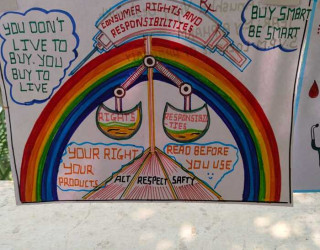 CONSUMER RIGHTS AND
RESPONSIBILITIES
YOU DON'T
LIVE TO
BUY. YOU
BUY TO
LIVE
BUY SMART
BE SMART
RIGHTS
RESPONSIBILI
TIES
YOUR RIGHT
YOUR
PRODUCTS
READ BEFORE
YOU USE
ACT RESPECT SAFTY